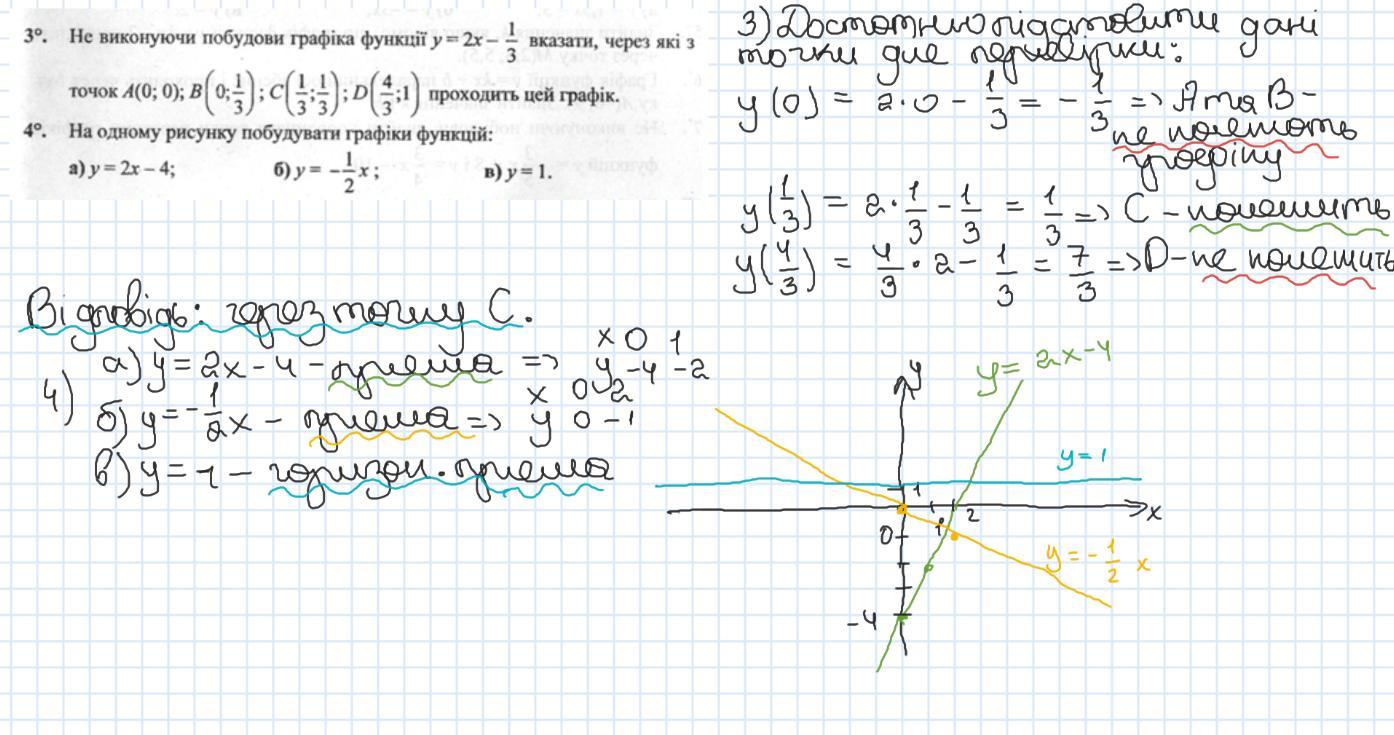 3°. Не виконуючи побудови графіка функції y = 2x − 1/3 вказати, через які з
точок A(0; 0); B(0; 1/3); C(1/3; 1/3); D(4/3; 1) проходить цей графік.
4°. На одному рисунку побудувати графіки функцій:
а) y = 2x − 4; б) y = −1/2 x; в) y = 1.
3) Достатньо підставити дані
точки для перевірки:
y(0) = 2·0 − 1/3 = −1/3 => A та B –
не належать
графіку
y(1/3) = 2·1/3 − 1/3 = 1/3 => C – належить
y(4/3) = 4/3·2 − 1/3 = 7/3 => D – не належить
Відповідь: через точку C.
4) а) y = 2x − 4 – пряма => x 0 1
y −4 −2
б) y = −1/2 x – пряма => x 0 2
y 0 −1
в) y = 1 – горизон. пряма
y
y = 2x−4
y = 1
1
x
0
1
2
y = −1/2 x
−4